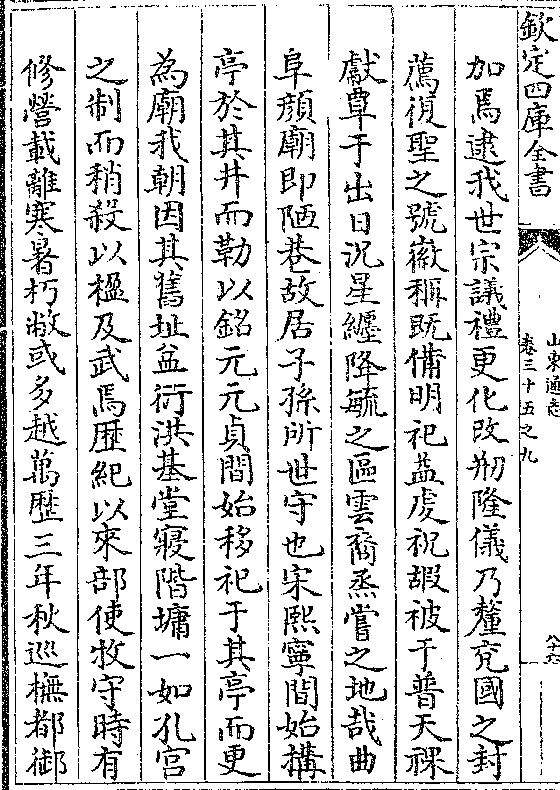 欽定四庫全書
山東通志
卷三十五之九
加焉逮我世宗議禮更化改刱隆儀乃釐兖國之封
薦復聖之號徽稱既備明祀益虔祝嘏被于普天祼
獻覃于出日况星纏降毓之區雲裔烝嘗之地哉曲
阜顔廟即陋巷故居子孫所世守也宋熙寧間始搆
亭於其井而勒以銘元元貞間始移祀于其亭而更
為廟我朝因其舊址益衍洪基堂寢階墉一如孔宫
之制而稍殺以楹及武焉歴紀以來部使牧守時有
修營載離寒暑朽敝或多越萬歴三年秋巡撫都御